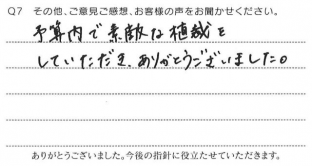 Q7 その他、ご意見ご感想、お客様の声をお聞かせください。
予算内で素敵な植栽を
していただき、ありがとうございました。
ありがとうございました。今後の指針に役立たせていただきます。